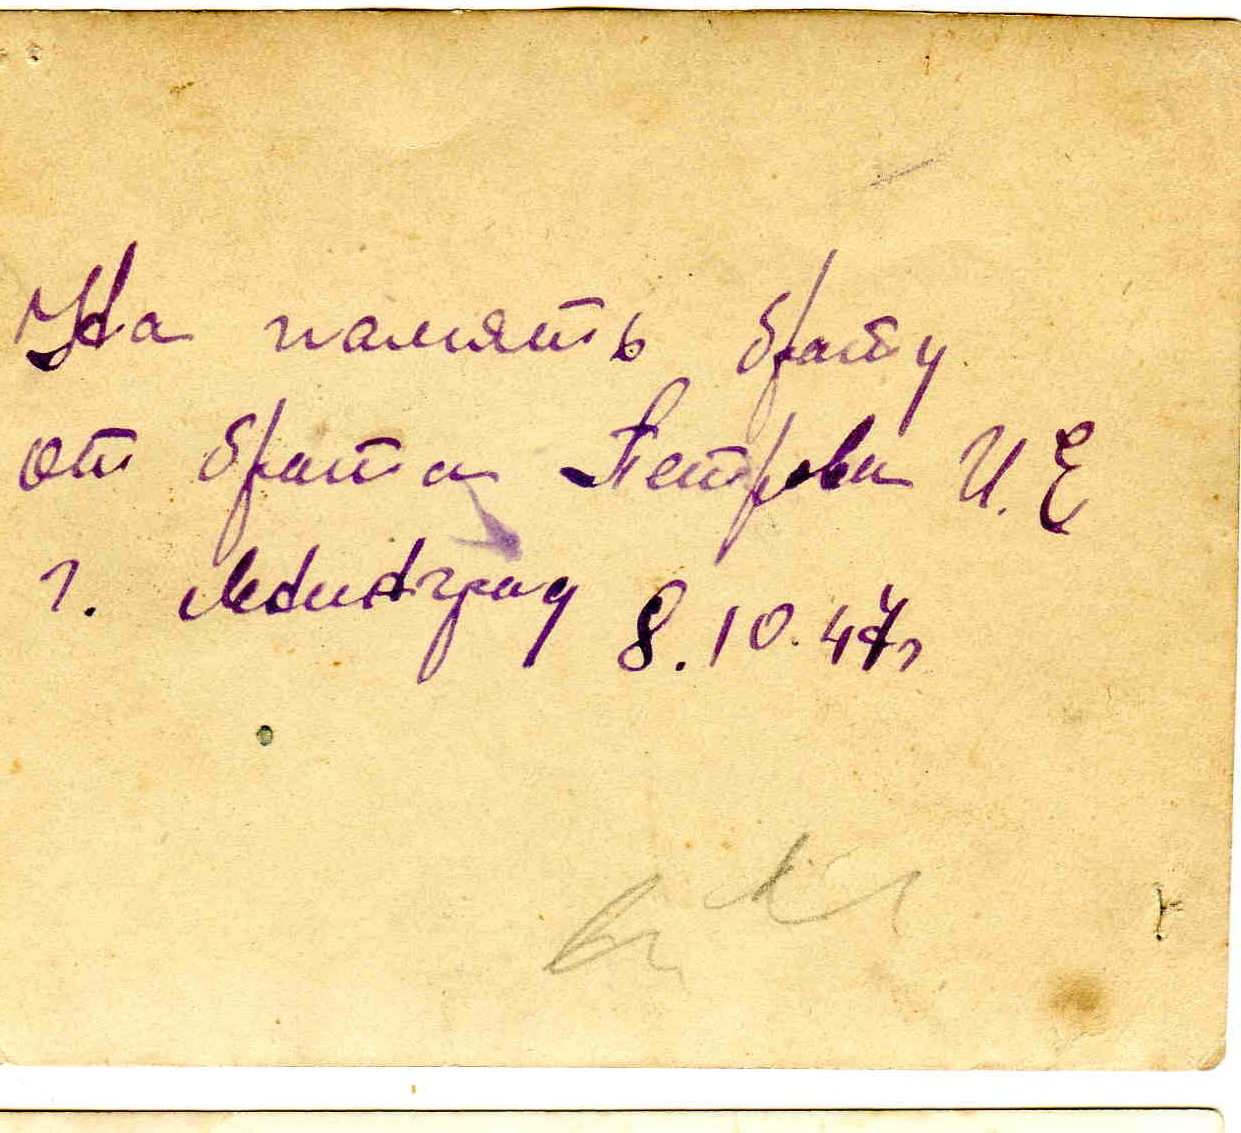 На память брату
от брата Петрова И. Е
г. Ленинград 8.10.47г